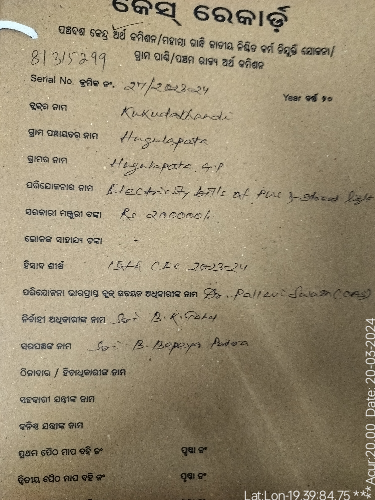 କେସ୍ ରେକାର୍ଡ଼
ପଞ୍ଚଦଶ କେନ୍ଦ୍ର ଅର୍ଥ କମିଶନ/ମହାତ୍ମା ଗାନ୍ଧି ଜାତୀୟ ନିଶ୍ଚିତ କର୍ମ ନିଯୁକ୍ତି ଯୋଜନା/
81315299 ଗ୍ରାମ ପାଣ୍ଠି/ପଞ୍ଚମ ରାଜ୍ୟ ଅର୍ଥ କମିଶନ
Serial No. କ୍ରମିକ ନଂ. 27/2023-24 Year ବର୍ଷ ୨୦
ବ୍ଲକ୍‌ର ନାମ Kukudakhandi
ଗ୍ରାମ ପଞ୍ଚାୟତର ନାମ Hugulapata
ଗ୍ରାମର ନାମ Hugulapata G.P
ପରିଯୋଜନାର ନାମ Electricity bills of PWS & street light
ସରକାରୀ ମଞ୍ଜୁରୀ ଟଙ୍କା Rs 200000/-
ଲୋକଙ୍କ ସାହାଯ୍ୟ ଟଙ୍କା -
ହିସାବ ଶୀର୍ଷ 15th CFC 2023-24
ପରିଯୋଜନା ଭାରପ୍ରାପ୍ତ ବ୍ଲକ୍ ଉନ୍ନୟନ ଅଧିକାରୀଙ୍କ ନାମ Pallavi Swain (OAS)
ନିର୍ବାହୀ ଅଧିକାରୀଙ୍କ ନାମ Sri B.K.
ସରପଞ୍ଚଙ୍କ ନାମ B.
ଠିକାଦାର / ହିତାଧିକାରୀଙ୍କ ନାମ
ସହକାରୀ ଯନ୍ତ୍ରୀଙ୍କ ନାମ
କନିଷ୍ଠ ଯନ୍ତ୍ରୀଙ୍କ ନାମ
ପ୍ରଥମ ପୈଠ ମାପ ବହି ନଂ ପୃଷ୍ଠା ନଂ
ଦ୍ୱିତୀୟ ପୈଠ ମାପ ବହି ନଂ ପୃଷ୍ଠା ନଂ
Lat:Lon-19.39:84.75 ***
***Acur:20.00 Date: 20-03-2024